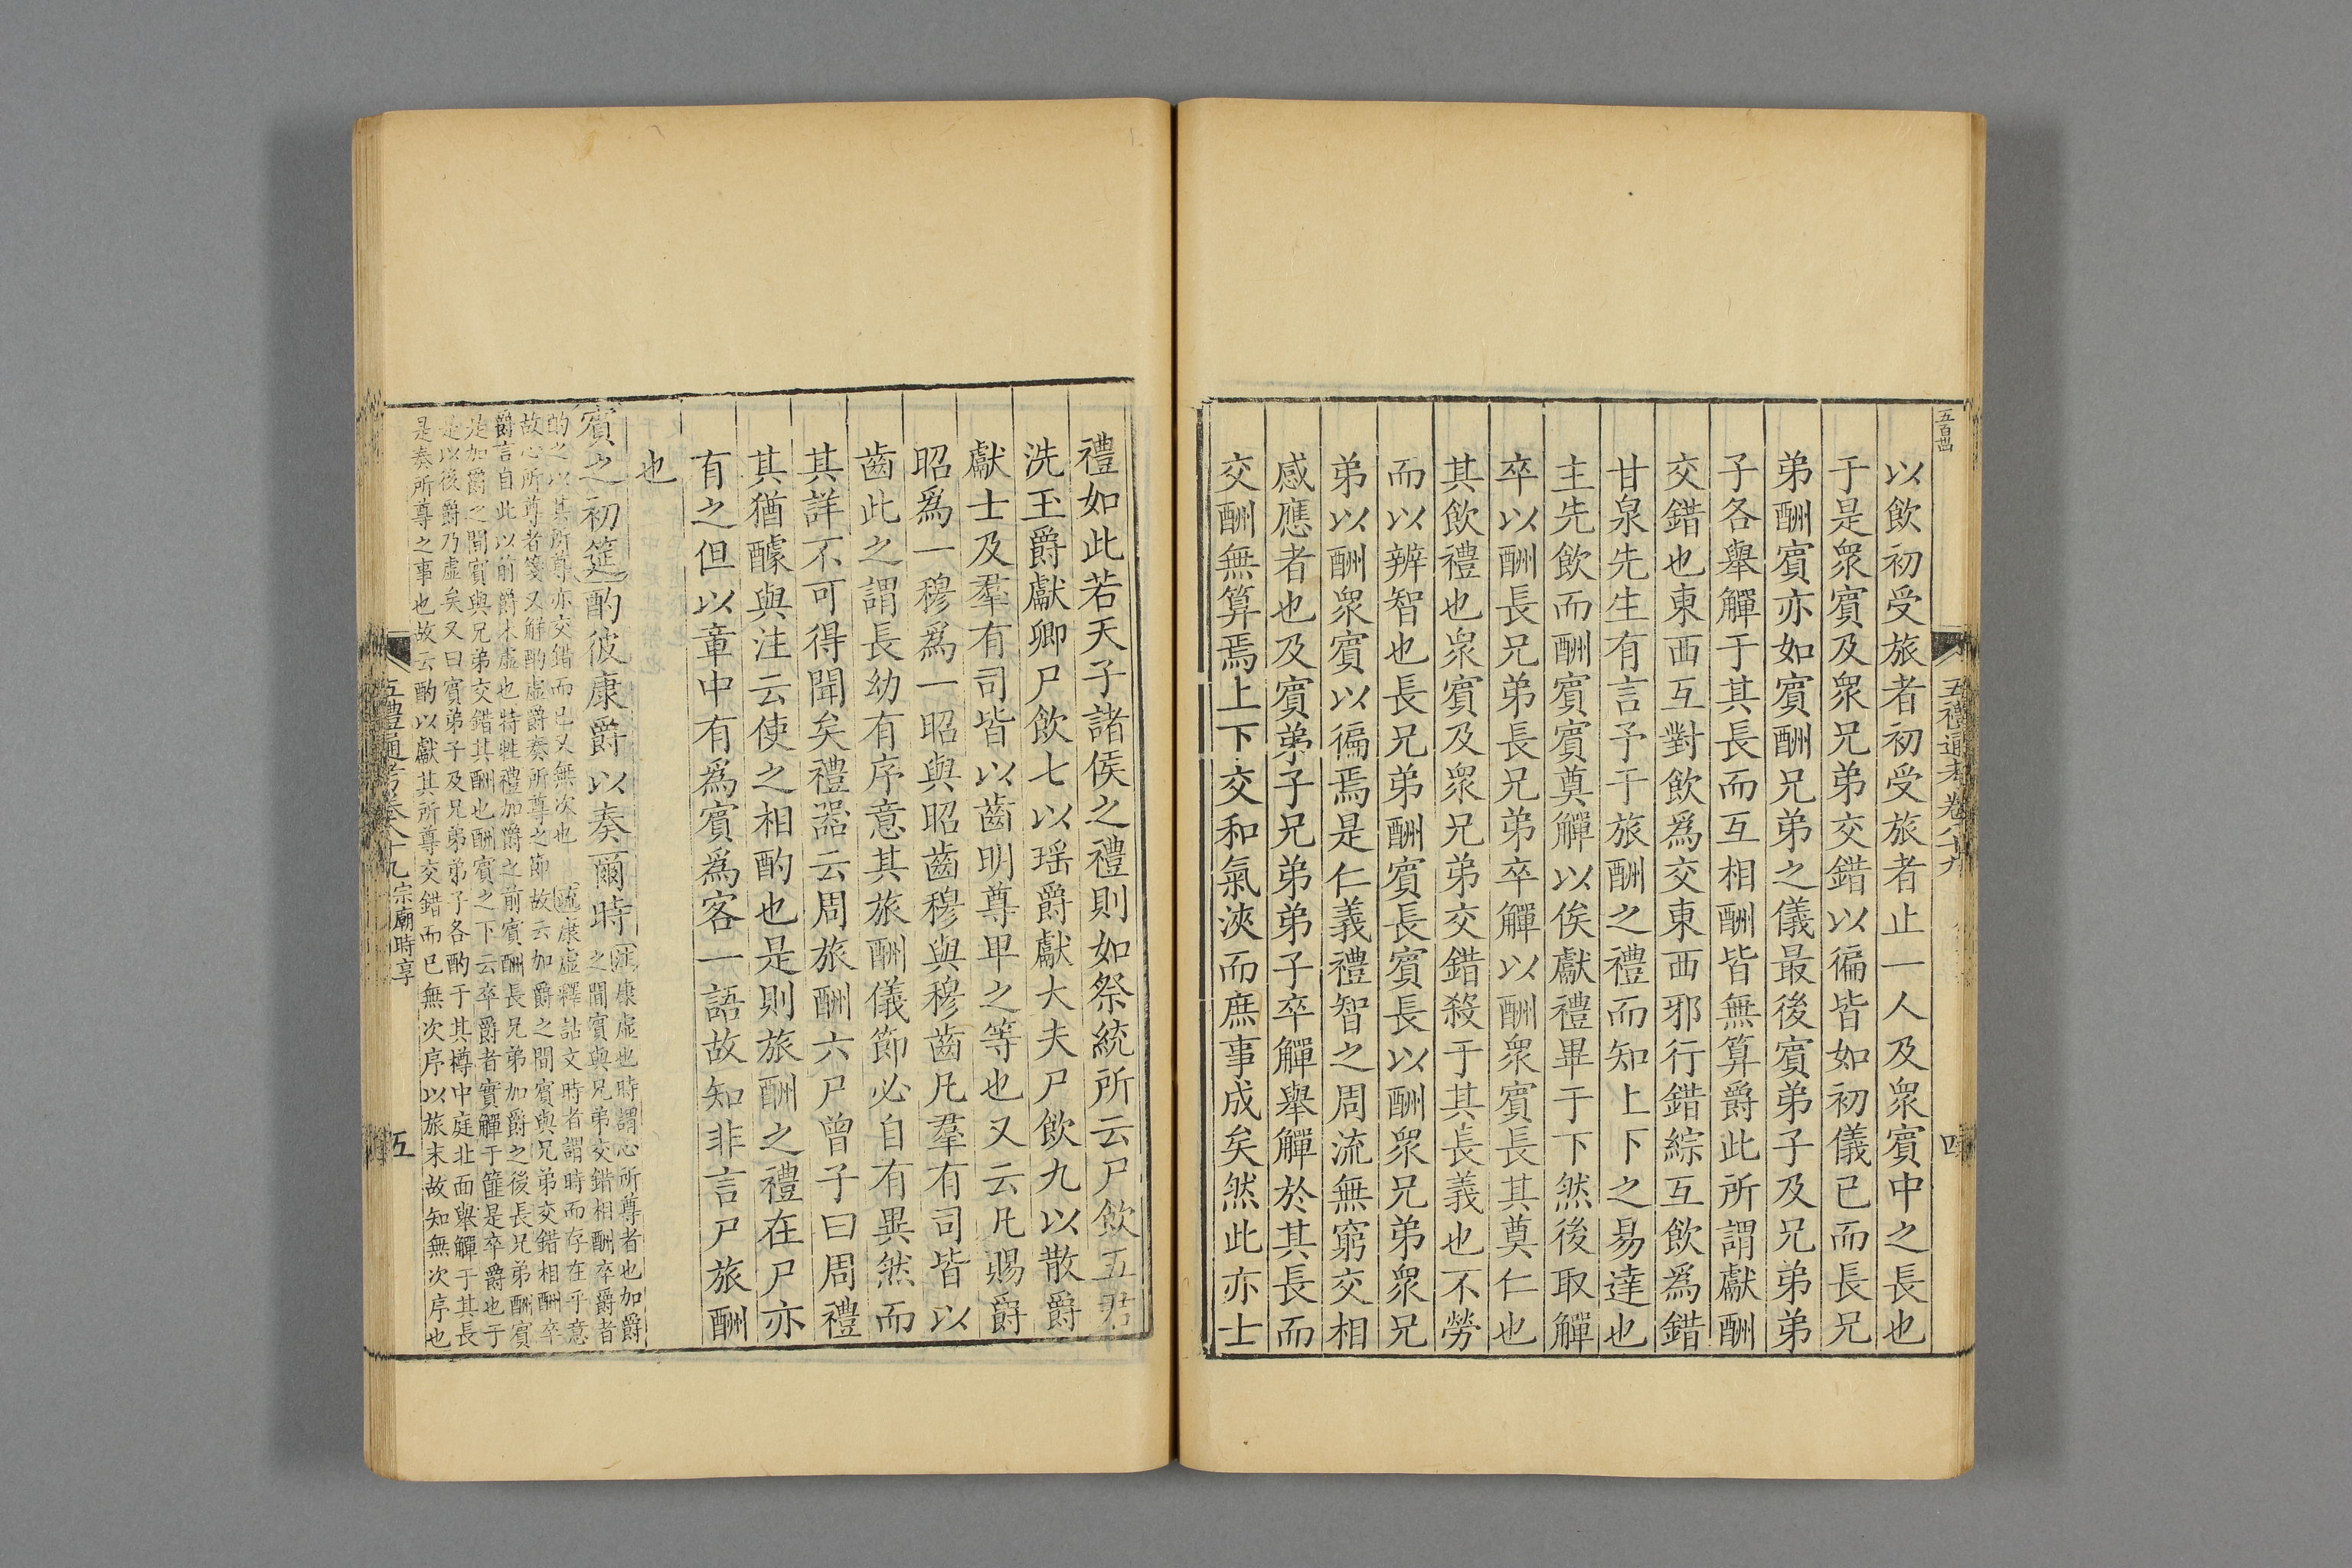 五百四
五禮通考卷八十九
四
以飲初受旅者初受旅者止一人及衆賓中之長也
于是衆賓及衆兄弟交錯以徧皆如初儀已而長兄
弟酬賓亦如賓酬兄弟之儀最後賓弟子及兄弟弟
子各舉觶于其長而互相酬皆無算爵此所謂獻酬
交錯也東西互對飲爲交東西邪行錯綜互飲爲錯
甘泉先生有言予于旅酬之禮而知上下之易達也
主先飲而酬賓賓奠觶以俟獻禮畢于下然後取觶
卒以酬長兄弟長兄弟卒觶以酬衆賓長其奠仁也
其飲禮也衆賓及衆兄弟交錯殺于其長義也不勞
而以辨智也長兄弟酬賓長賓長以酬衆兄弟衆兄
弟以酬衆賓以徧焉是仁義禮智之周流無窮交相
感應者也及賓弟子兄弟弟子卒觶舉觶於其長而
交酬無算焉上下交和氣浹而庶事成矣然此亦士
禮如此若天子諸侯之禮則如祭統所云尸飲五君
洗玉爵獻卿尸飲七以瑤爵獻大夫尸飲九以散爵
獻士及羣有司皆以齒明尊卑之等也又云凡賜爵
昭爲一穆爲一昭與昭齒穆與穆齒凡羣有司皆以
齒此之謂長幼有序意其旅酬儀節必自有異然而
其詳不可得聞矣禮器云周旅酬六尸曾子曰周禮
其猶醵與注云使之相酌也是則旅酬之禮在尸亦
有之但以章中有爲賓爲客一語故知非言尸旅酬
也
賓之初筵酌彼康爵以奏爾時
注康虛也時謂心所尊者也加爵
之間賓與兄弟交錯相酬卒爵者
酌之以其所尊亦交錯而已又無次也 疏康虛釋詁文時者謂時而存在乎意
故心所尊者箋又解酌虛爵奏所尊之節故云加爵之間賓與兄弟交錯相酬卒
爵言自此以前爵未虛也特牲禮加爵之前賓酬長兄弟加爵之後長兄弟酬賓
是加爵之間賓與兄弟交錯其酬也酬賓之下云卒爵者實觶于篚是卒爵也于
是以後爵乃虛矣又曰賓弟子及兄弟弟子各酌于其樽中庭北面舉觶于其長
是奏所尊之事也故云酌以獻其所尊交錯而已無次序以旅末故知無次序也
五禮通考卷八十九 宗廟時享
五